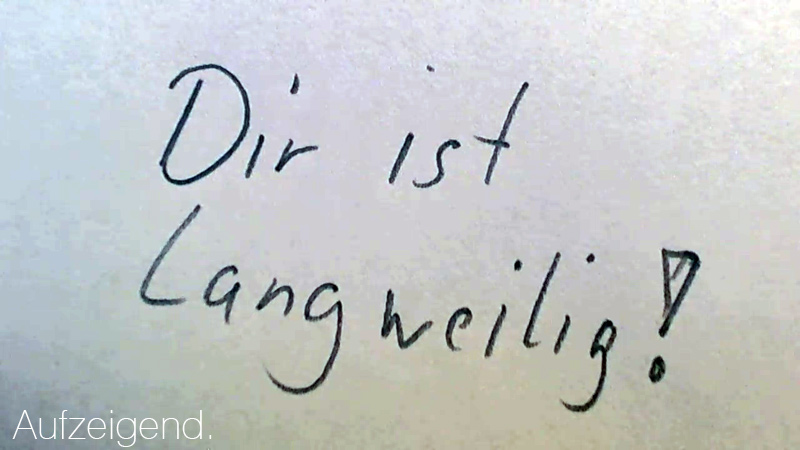 Dir ist
Langweilig!
Aufzeigend.